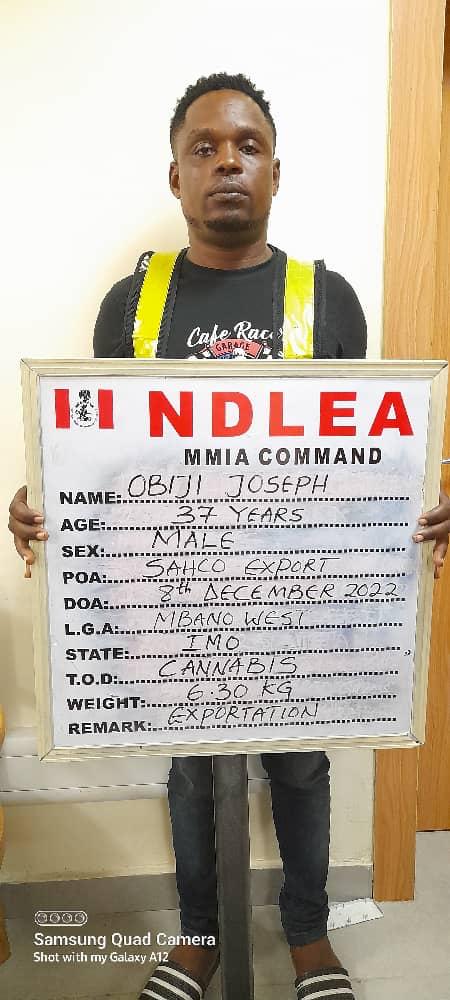 Cafe Race
GARAGE
NDLEA
MMIA COMMAND
NAME: OBIJI JOSEPH
AGE: 37 YEARS
SEX: MALE
POA: SAHCO EXPORT
DOA: 8th DECEMBER 2022
L.G.A: MBANO WEST
STATE: IMO
T.O.D: CANNABIS
WEIGHT: 6.30 KG
REMARK: EXPORTATION
Samsung Quad Camera
Shot with my Galaxy A12